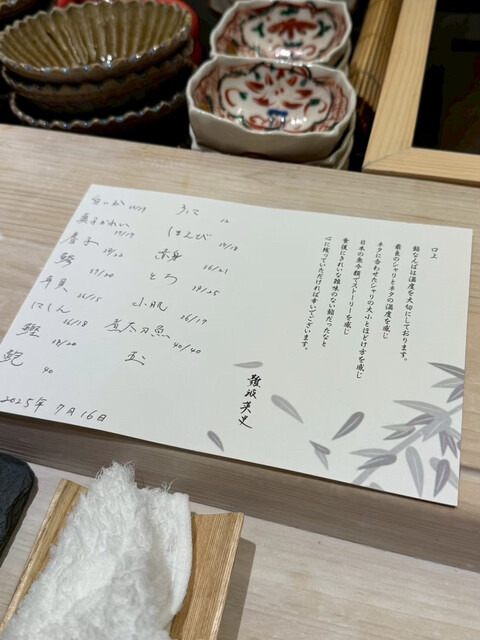 口上
鮨なんばは温度を大切にしております。
最良のシャリとネタの温度を感じ
ネタに合わせたシャリの大小とほどけ方を感じ
日本の魚今節でストーリーを感じ
食後にきれいな雑味のない鮨だったなと
心に残っていただければ幸いでございます。
難波英史
白いか 19/19
真子がれい 19/19
春子 19/22
鯵 17/20
平貝 16/15
にしん 16/18
鰹 18/20
鮑 40
12
18/18
赤身 16/21
とろ 19/25
小肌 16/17
煮太刀魚 40/40
玉
2025年7月16日